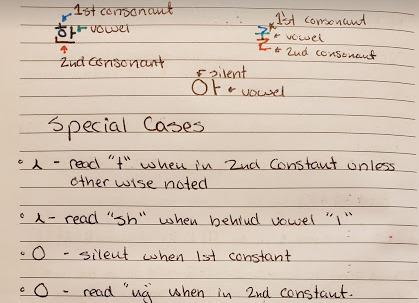 1st consonant
한 vowel
2nd consonant
1st consonant
vowel
2nd consonant
silent
아 vowel
Special Cases
ㅅ - read "t" when in 2nd constant unless
other wise noted
ㅅ - read "sh" when behind vowel "ㅣ"
ㅇ - silent when 1st constant
ㅇ - read "ng" when in 2nd constant.